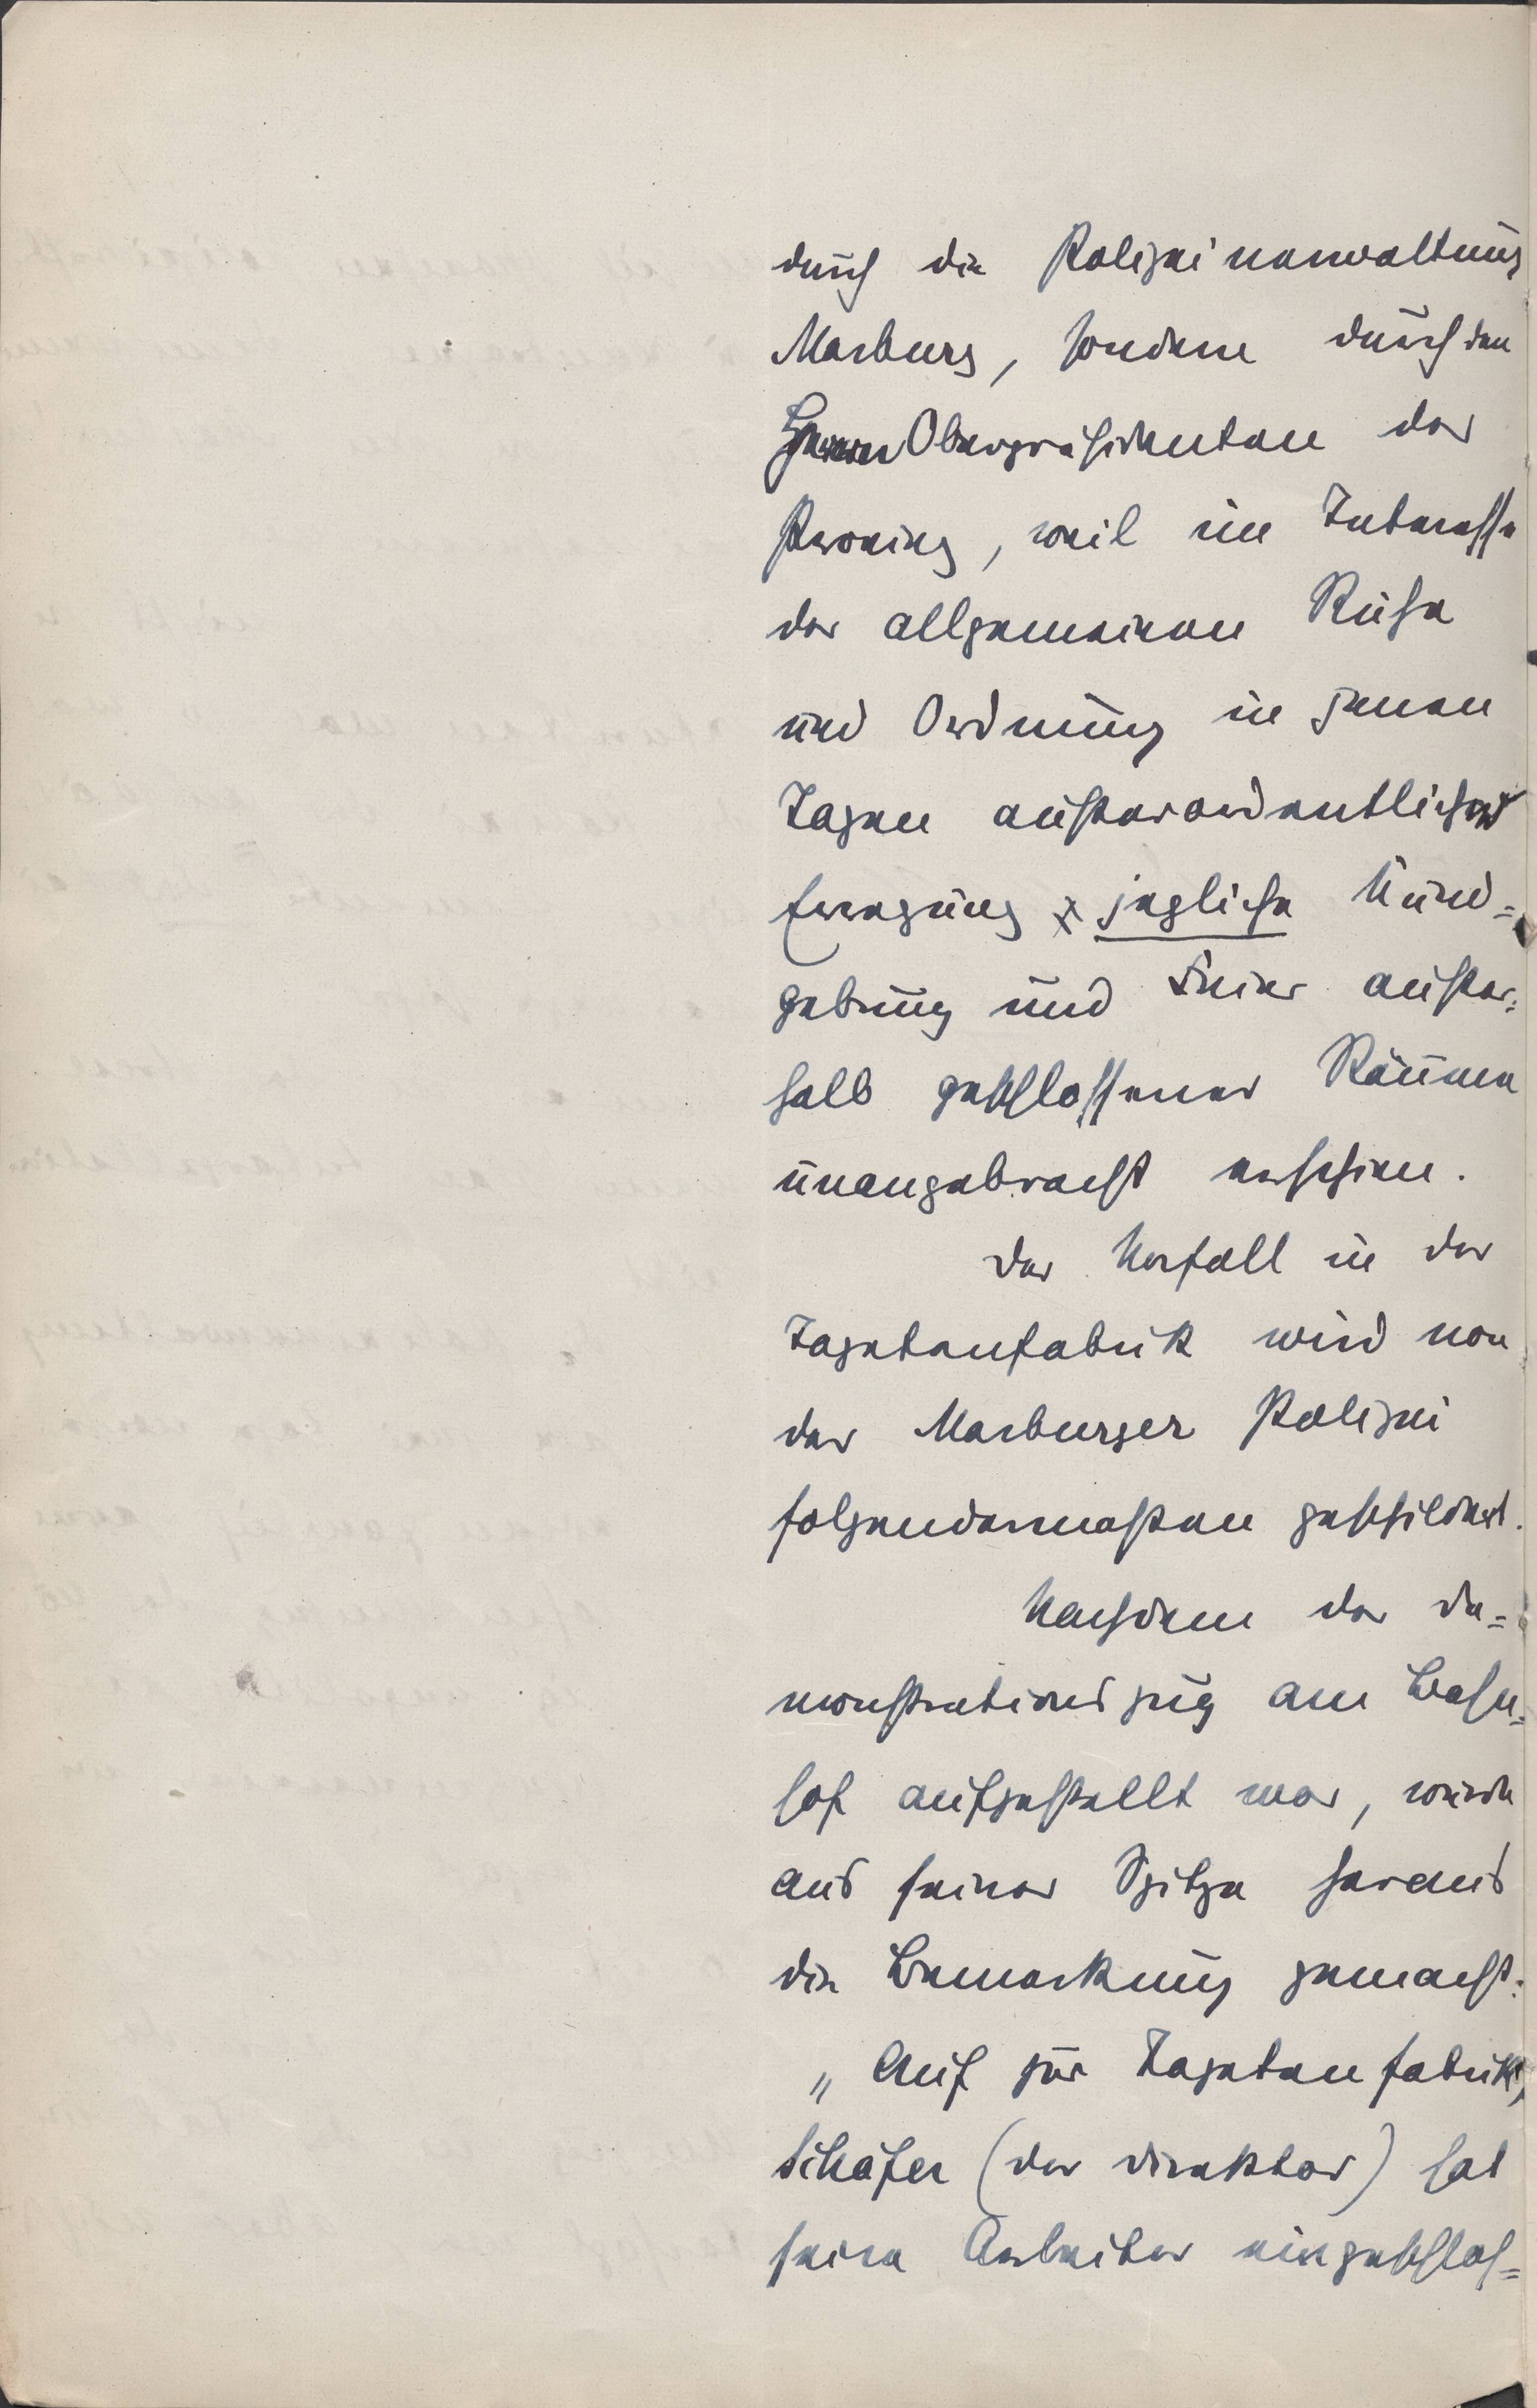 durch die Polizeiverwaltung
Marburg, sondern durch den
Herrn Oberpräsidenten der
Provinz, weil im Interesse
der allgemeinen Ruhe
und Ordnung in jenen
Tagen außerordentlicher
Erregung jegliche Kund=
gebung und Feier außer=
halb geschlossener Räume
unangebracht erschien.
Der Vorfall in der
Tapetenfabrik wird von
der Marburger Polizei
folgendermaßen geschildert.
Nachdem der De=
monstrationszug am Bahn=
hof aufgestellt war, wurde
aus seiner Spitze heraus
die Bemerkung gemacht:
„Auf zur Tapetenfabrik,
Schäfer (der Direktor) hat
seine Arbeiter eingeschlos=